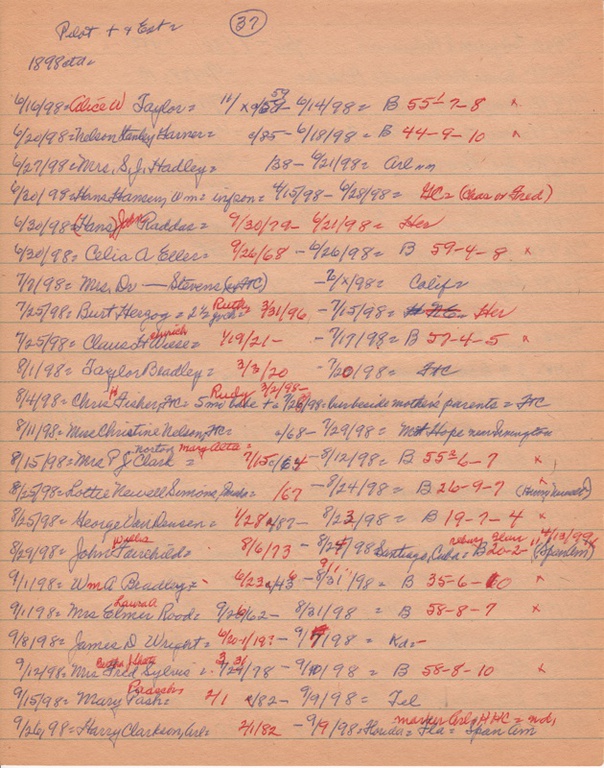 Pilot + & Ext = (37)
1898 ctd =
6/16/98 = Alice W Taylor = 11/x 0/59 - 6/14/98 = B 55-7-8 x
6/20/98 = Nelson Stanley Garner = 0/25 - 6/18/98 = B 44-9-10 x
6/27/98 = Mrs. S. J. Hadley = /38 - 6/21/98 = Arl
6/30/98 = Hans Hansen, Wm = inf son = 4/15/98 - 6/28/98 = HC = (Chas or Fred)
6/30/98 (Hans) John Raddas = 9/30/79 - 6/21/98 = Her
6/30/98 = Celia A Eller = 9/26/68 - 6/26/98 = B 59-4-8 x
7/7/98 = Mrs. Dr — Stevens ( HC) - /x/98 = Calif =
7/25/98 = Burt Herzog = 2½ Ruth 3/31/96 - 7/15/98 = Her
7/25/98 = Claus H Wiese = 1/19/21 - - 7/17/98 = B 57-4-5 x
8/1/98 = Taylor Bradley = 3/3/20 - 7/20/98 = HC
8/4/98 = Chris H Fisher, HC = 5 mo babe Rudy 3/2/98 - + 7/26/98 = bur beside mother's parents = HC
8/11/98 = Miss Christine Nelson, HC = 0/68 - 7/29/98 = Mt Hope near
8/15/98 = Mrs P J Norton Clark = Mary Aetta = 7/15/64 - 8/12/98 = B 55-6-7 x
8/25/98 = Lottie Newell Simons, = /67 - 8/24/98 = B 26-9-7 x (Henry Newell)
8/25/98 = George Van Deusen = 1/28/87 - 8/23/98 = B 19-7-4 x
8/29/98 = John Willis Fairchild = 8/6/73 - 8/24/98 Santiago, Cuba = rebury Blair 4/13/99 B 20-2-11 (Span Am)
9/1/98 = Wm A Bradley = 6/23/43 - 8/31/98 = B 35-6-10 x
9/1/98 = Mrs Laura A Elmer Rood = 9/26/62 - 8/31/98 = B 58-8-7 x
9/8/98 = James D Wright = 4/20-1/19? - 9/7/98 = Ka =
9/12/98 = Mrs Fred Sylvis = /98 - 9/10/98 = B 58-8-10 x
9/15/98 = Mary Pash = 2/1 /82 - 9/9/98 = Tel
9/26/98 = Harry Clarkson, Arl = 2/1/82 - 9/9/98 = Florida = Fla = Span Am